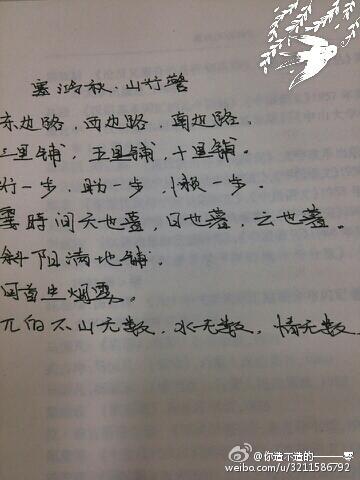 塞鸿秋·山行警
东边路,西边路,南边路。
三里铺,五里铺,十里铺。
行一步,盼一步,懒一步。
霎時间天也暮,日也暮,云也暮。
斜阳满地铺。
回首生烟雾。
兀的不山无数,水无数,情无数
@你造不造的——零
weibo.com/u/3211586792